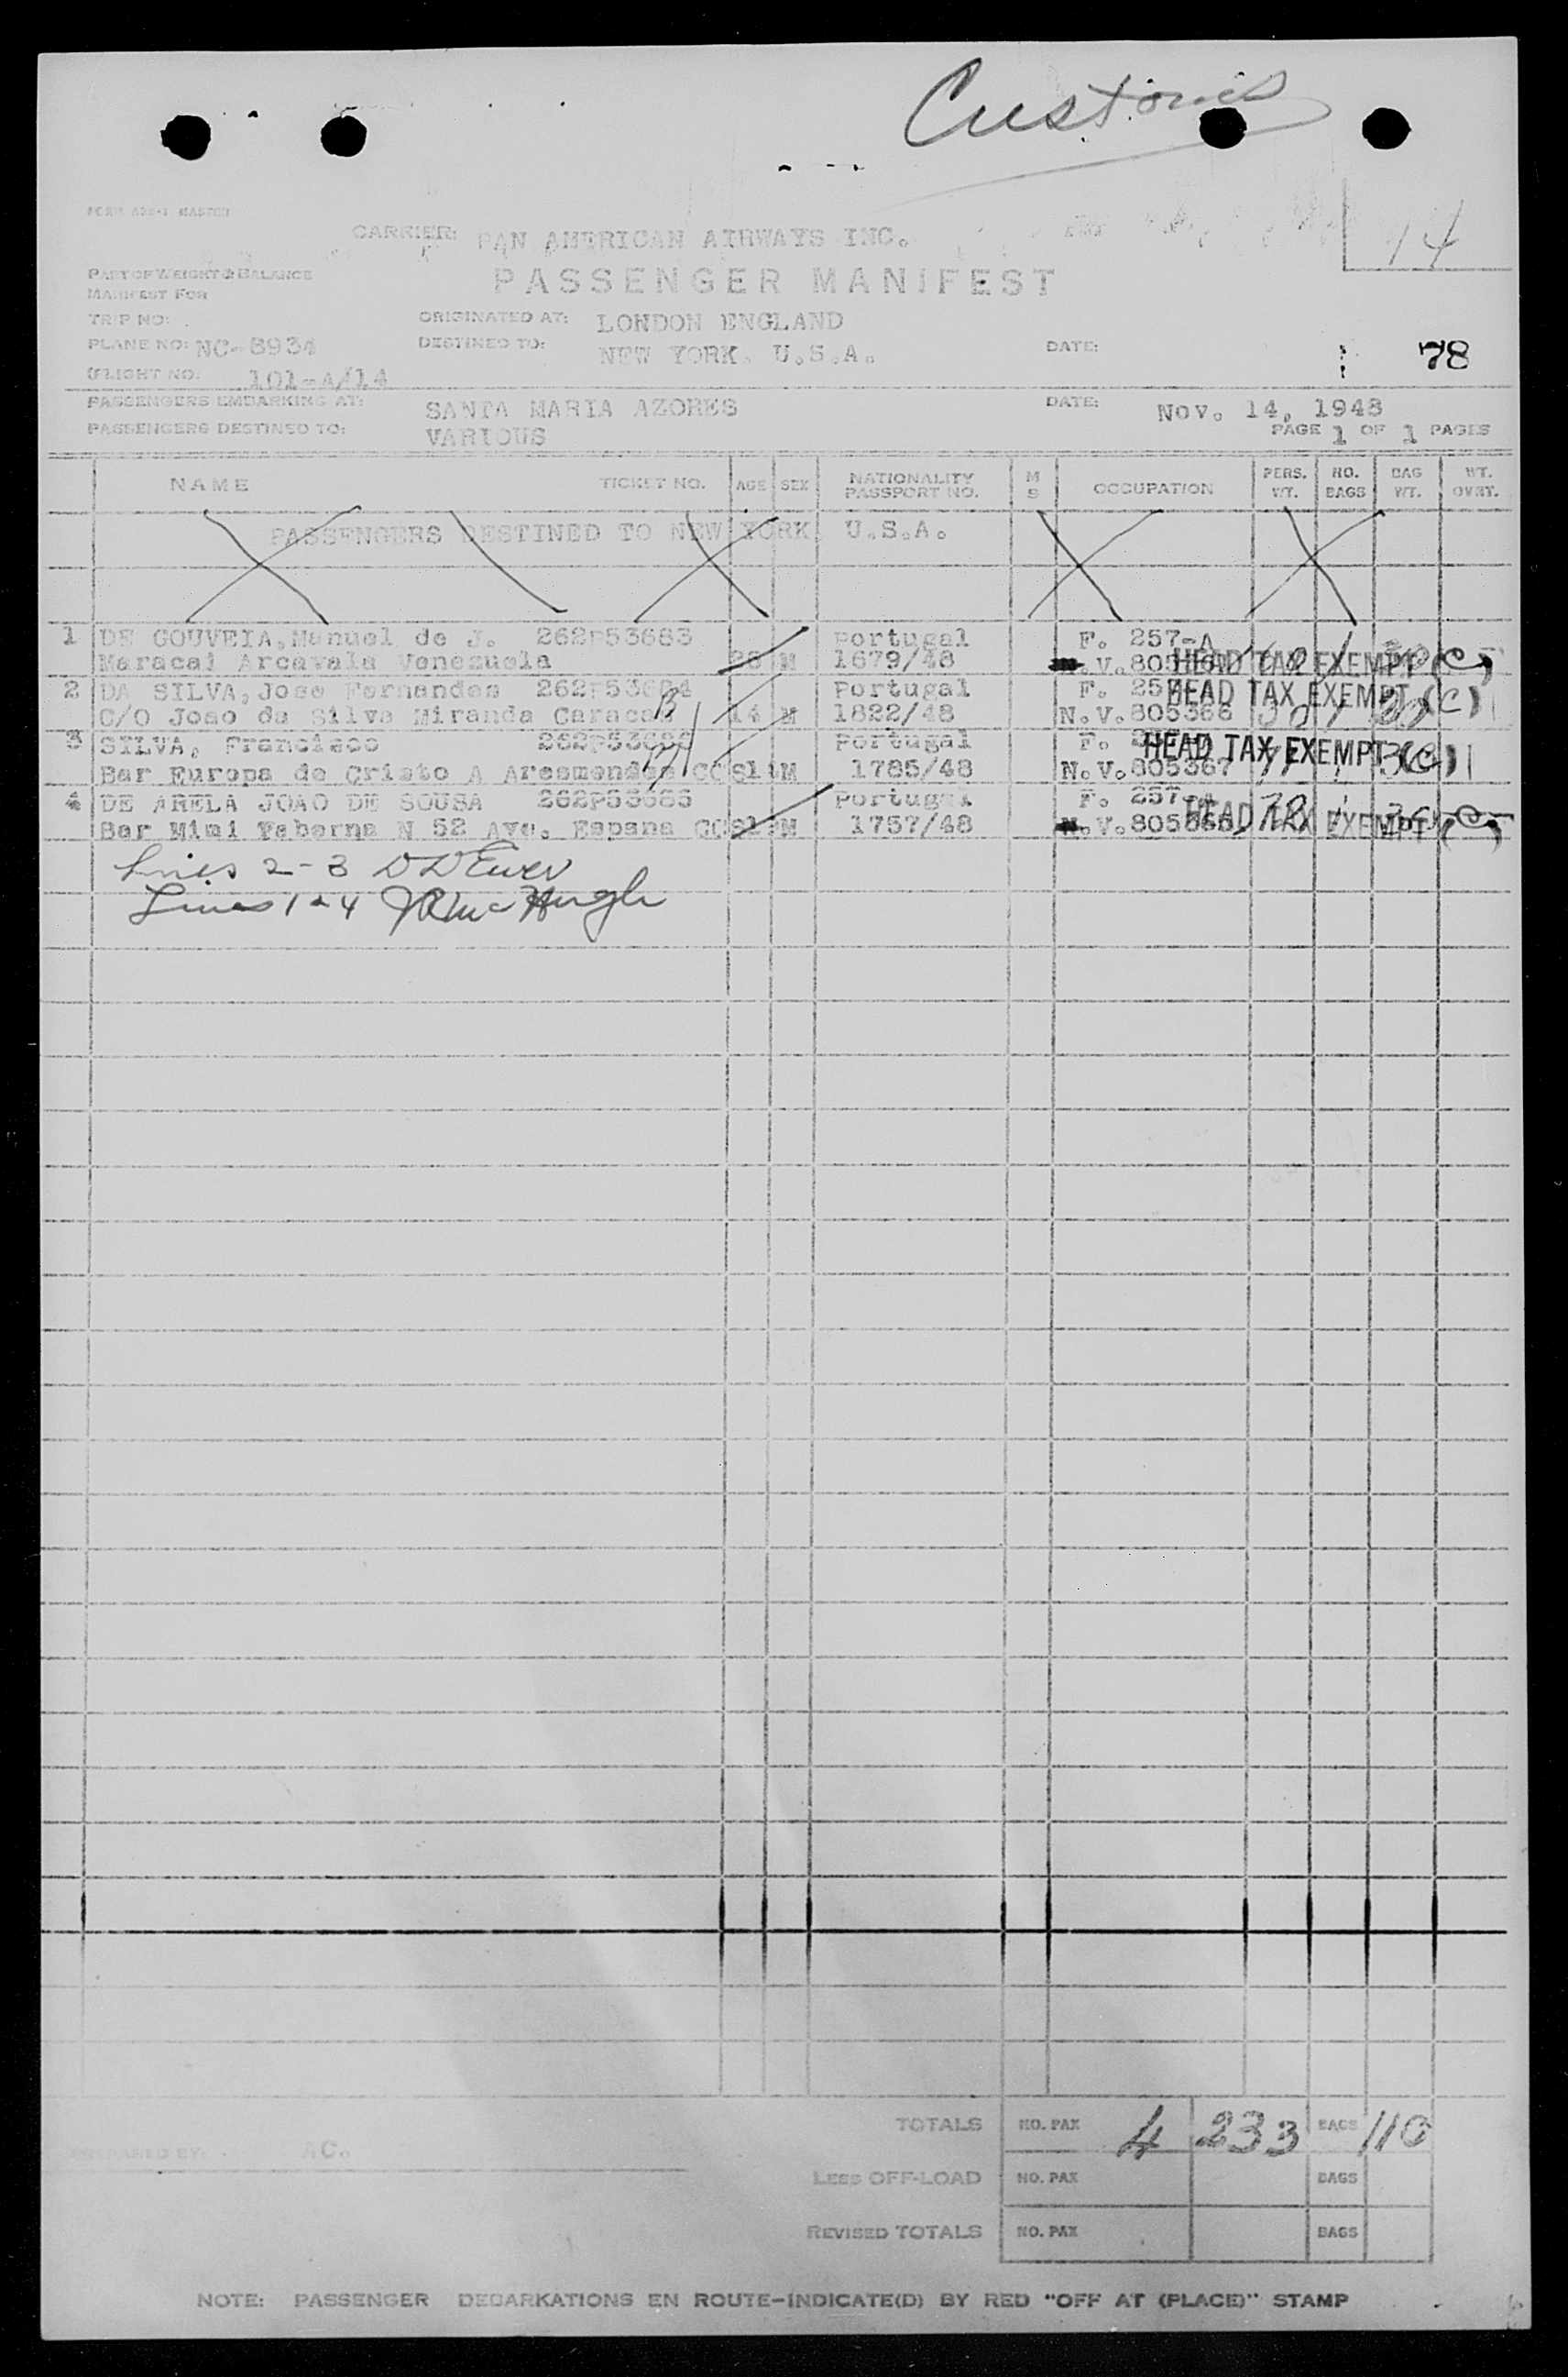 Customs
CARRIER: PAN AMERICAN AIRWAYS INC.
14
PART OF WEIGHT & BALANCE
MANIFEST FOR
PASSENGER MANIFEST
TRIP NO:
ORIGINATED AT: LONDON ENGLAND
PLANE NO: NC-8934
DESTINED TO: NEW YORK. U.S.A.
DATE:
78
FLIGHT NO. 101-A/14
PASSENGERS EMBARKING AT: SANTA MARIA AZORES
DATE: Nov. 14, 1948
PASSENGERS DESTINED TO: VARIOUS
PAGE 1 OF 1 PAGES
NAME TICKET NO. AGE SEX NATIONALITY PASSPORT NO. M S OCCUPATION PERS. WT. NO. BAGS BAG WT. WT. OVRT.
PASSENGERS DESTINED TO NEW YORK U.S.A.
1 DE GOUVEIA, Manuel de J. 262P53683 Portugal F. 257-A
Maracai Arcavala Venezuela 28 M 1679/48 HEAD TAX EXEMPT (C)
2 DA SILVA, Jose Fernandes 262P53684 Portugal F. HEAD TAX EXEMPT (C)
C/O Joao da Silva Miranda Caracas 14 M 1822/48 N.V.805366 30 1
3 SILVA, Francisco Portugal F. HEAD TAX EXEMPT (C)
Bar Europa de Cristo A M 1785/48 N.V.805367
4 DE ABELA JOAO DE SOUSA 262P53685 Portugal F. 257-A
Bar Mimi Taberna N 52 Ave. Espana M 1757/48 HEAD TAX EXEMPT (C)
Lines 2-3 D D Ewer
Lines 1 & 4 McHugh
TOTALS NO. PAX 4 233 BAGS 110
PREPARED BY: AC.
LESS OFF-LOAD NO. PAX BAGS
REVISED TOTALS NO. PAX BAGS
NOTE: PASSENGER DEBARKATIONS EN ROUTE-INDICATE(D) BY RED "OFF AT (PLACE)" STAMP